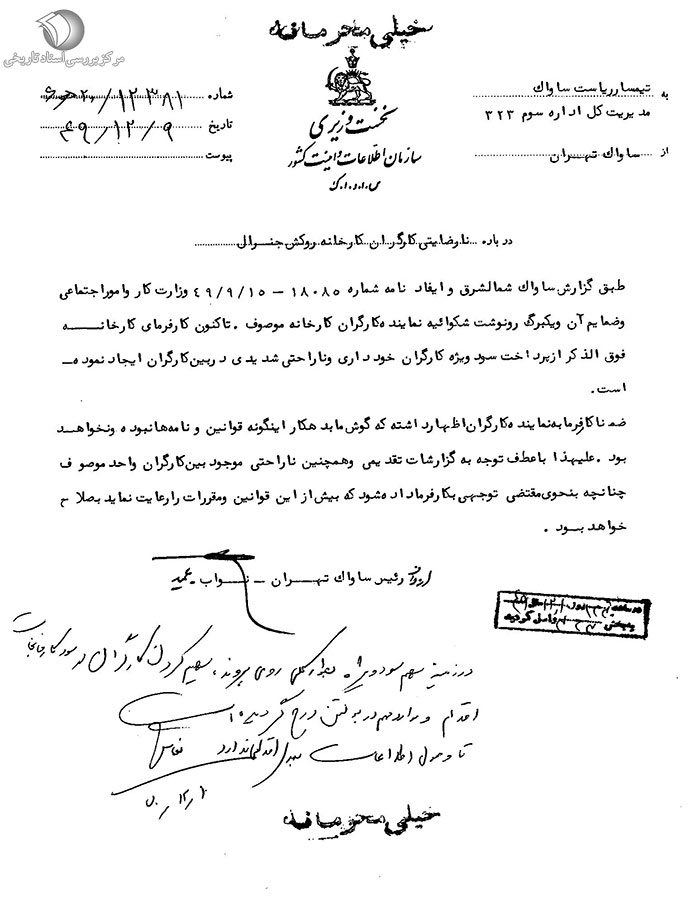 مرکز بررسی اسناد تاریخی
خیلی محرمانه
نخست وزیری
سازمان اطلاعات و امنیت کشور
س.ا.و.ا.ک
به تیمسار ریاست ساواک
مدیریت کل اداره سوم ۳۲۳
از ساواک تهران
شماره ۱۲۳۸۱/۲۰
تاریخ ۴۹/۱۲/۹
پیوست
درباره نارضایتی کارگران کارخانه روکش جنرال
طبق گزارش ساواک شمالشرق و ایفاد نامه شماره ۱۸۰۸۵ – ۴۹/۹/۱۵ وزارت کار و امور اجتماعی
وضمایم آن ویکبرگ رونوشت شکوائیه نماینده کارگران کارخانه موصوف . تاکنون کارفرمای کارخانه
فوق الذکر از پرداخت سود ویژه کارگران خود داری وناراحتی شدیدی در بین کارگران ایجاد نموده
است .
ضمنا کارفرما به نماینده کارگران اظهار داشته که گوش ما بدهکار اینگونه قوانین و نامه ها نبوده ونخواهد
بود . علیهذا با عطف توجه به گزارشات تقدیمی وهمچنین ناراحتی موجود بین کارگران واحد موصوف
چنانچه بنحوی مقتضی توجهی بکارفرما داده شود که بیش از این قوانین ومقررات را رعایت نماید بصلاح
خواهد بود .
رئیس ساواک تهران – نواب
در زمینه سهم سود ویژه روی پروند، سهیم کردن کارگران در سود کارخانجات
اقدام و مراتب هم در بولتن درج گردیده
تا وصول اطلاعات بعدی اقدامی ندارد
۱۲/۱۰
واصل گردید
خیلی محرمانه